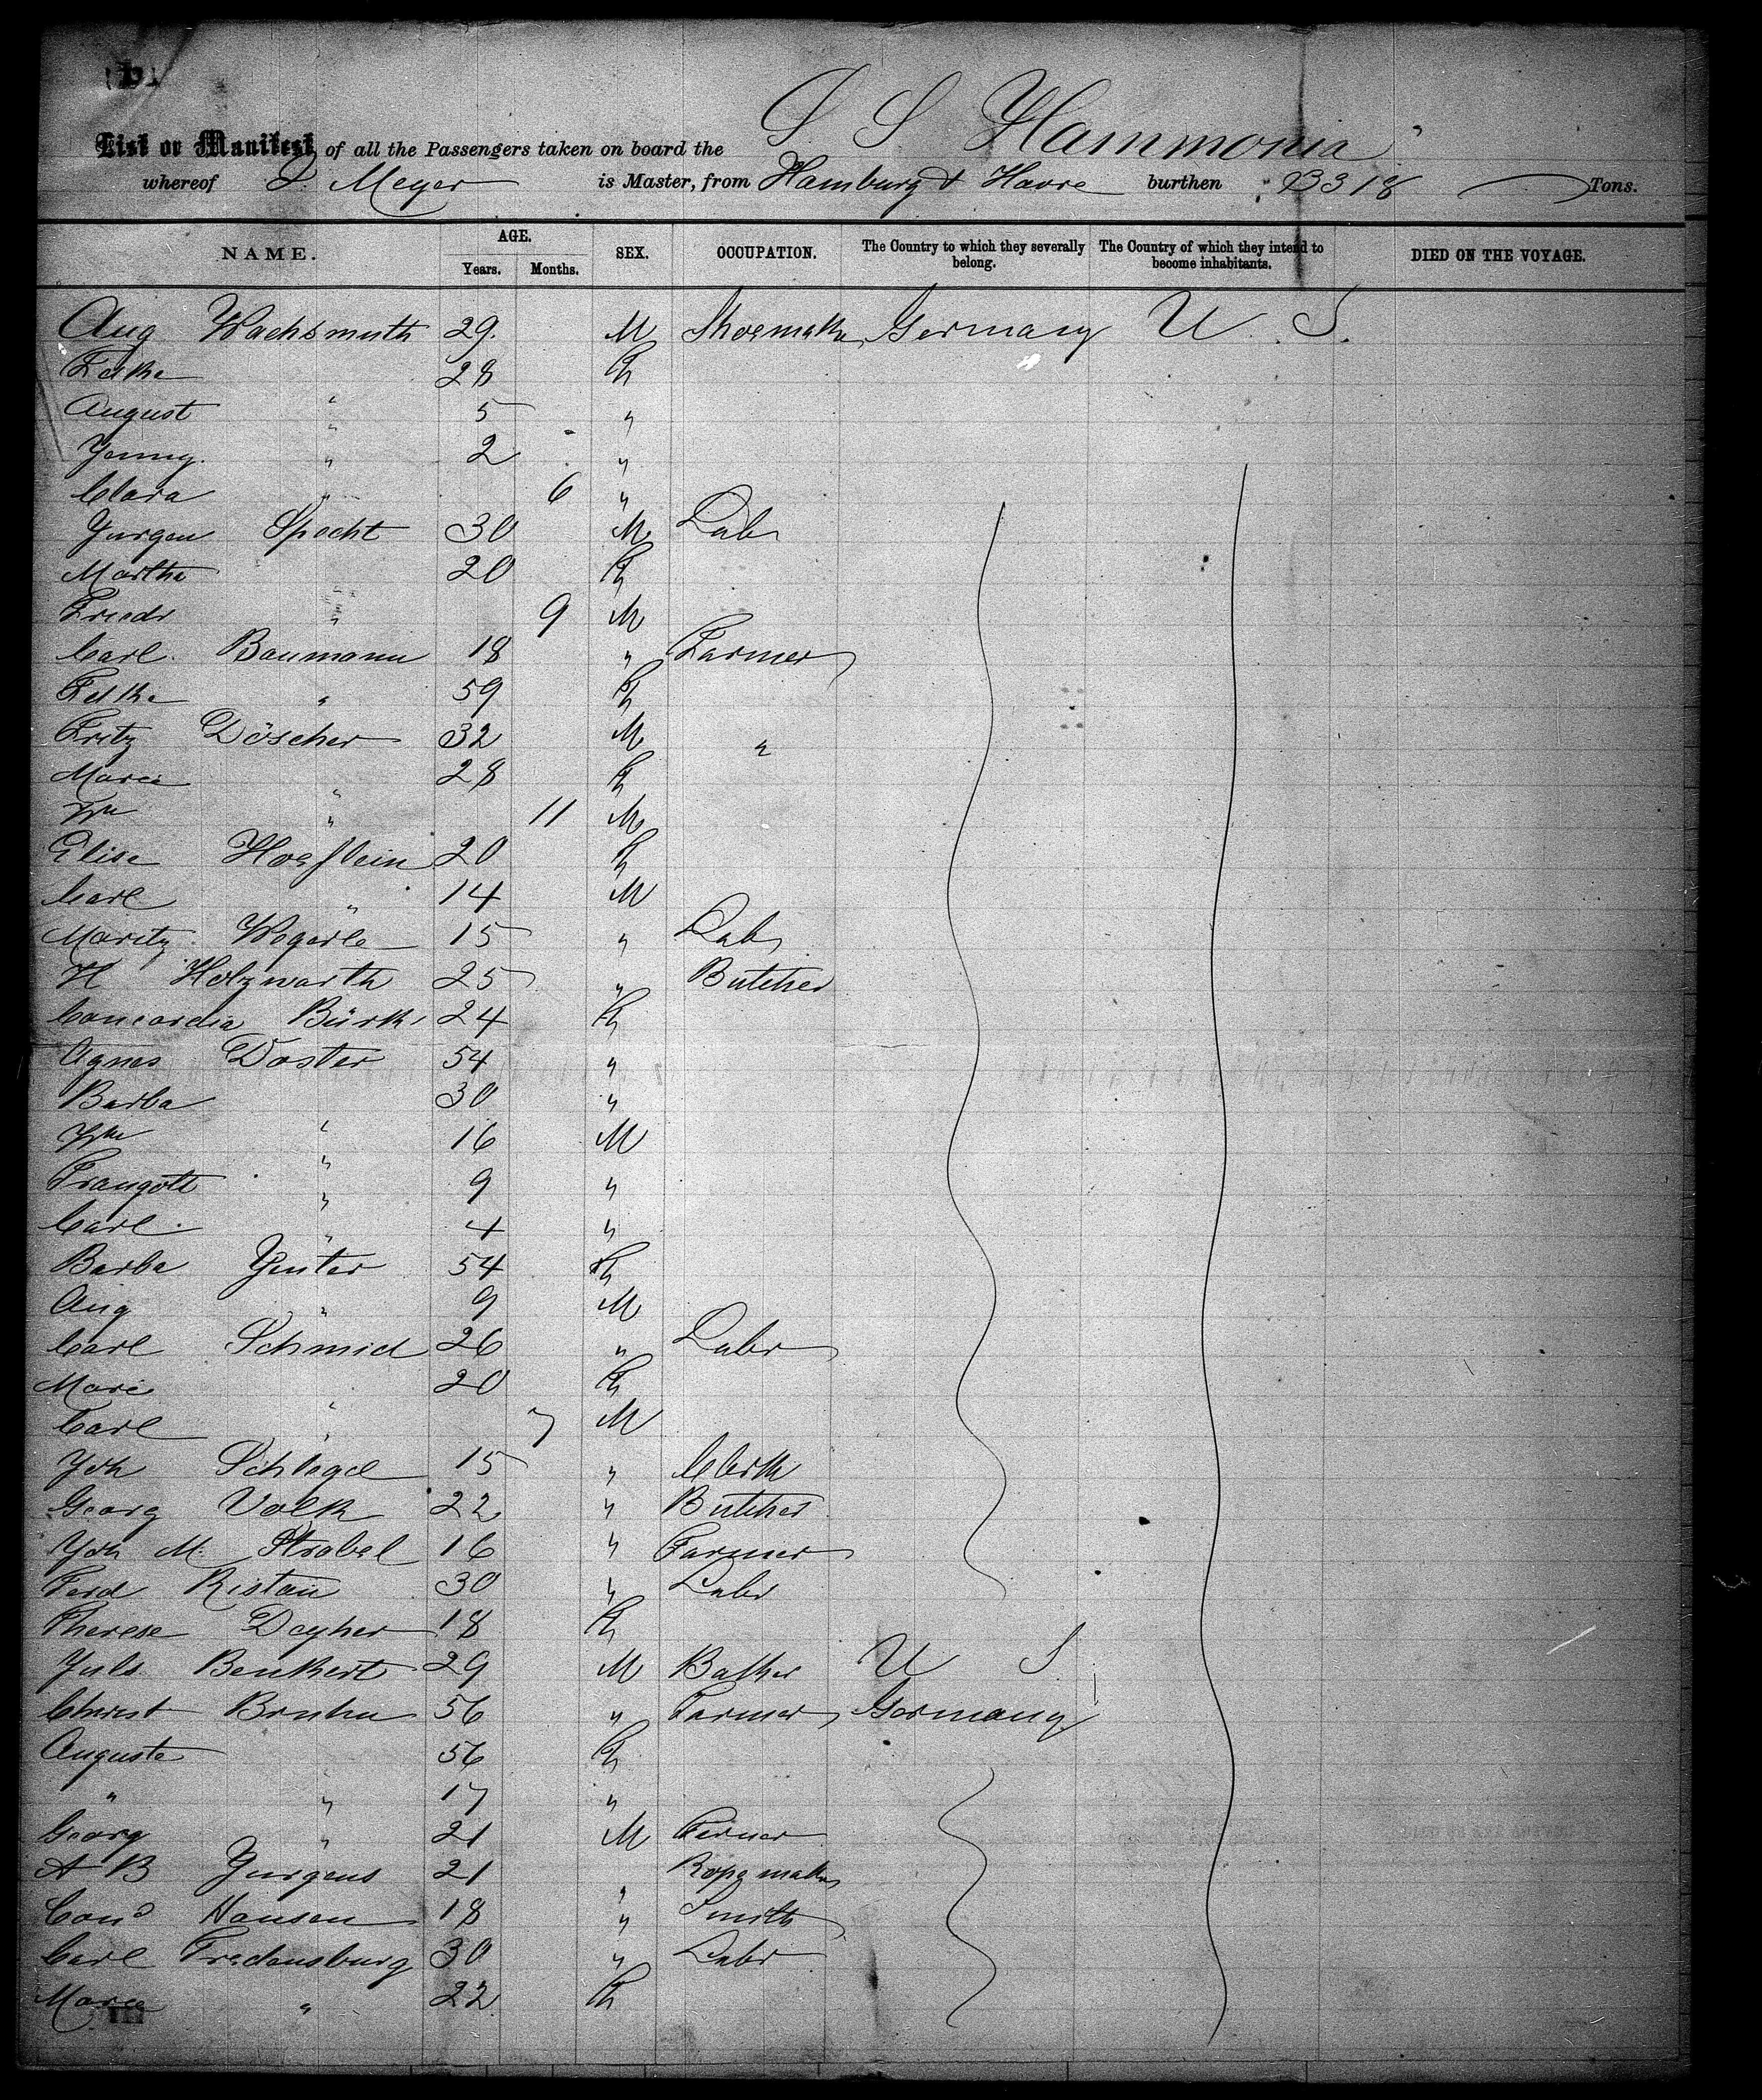 List or Manifest of all the Passengers taken on board the S S Hammonia
whereof Meyer is Master, from Hamburg & Havre burthen 3318 Tons.
NAME. AGE. Years. Months. SEX. OCCUPATION. The Country to which they severally belong. The Country of which they intend to become inhabitants. DIED ON THE VOYAGE.
Aug Wachsmuth 29. M Shoemaker Germany U. S.
28 F
August " 5 "
Jenny. " 2 "
Clara " 6 "
Jurgen Specht 30 M Lab
Martha 20 F
Friedr " 9 M
Carl. Baumann 18 " Farmer
" 59 F
Fritz Döscher 32 M "
Marie " 28 F
Wm " 11 M
Elise 20 F
Carl " 14 M
Moritz Wegerle 15 " Lab
H Holzwarth 25 " Butcher
Concordia Bürk 24 F
Agnes Doster 54 "
Barba 30 "
Wm " 16 M
Traugott " 9 "
Carl. " 4 "
Barba Genter 54 F
Aug " 9 M
Carl Schmid 26 " Labr
Marie " 20 F
Carl " 7 M
Joh Schlegel 15 " Clerk
Georg Volk 22 " Butcher
Joh M. Strobel 16 " Farmer
Ferd Ristau 30 " Labr
Therese Deyher 18 F
Juls Benkert 29 M U S
Christ Bruhn 56 " Farmer Germany
Auguste 56 F
" " 17 "
Georg " 21 M Farmer
A B Jurgens 21 " Ropemaker
Cond Hansen 18 " Smith
Carl Fredensburg 30 " Labr
Maria " 22 F